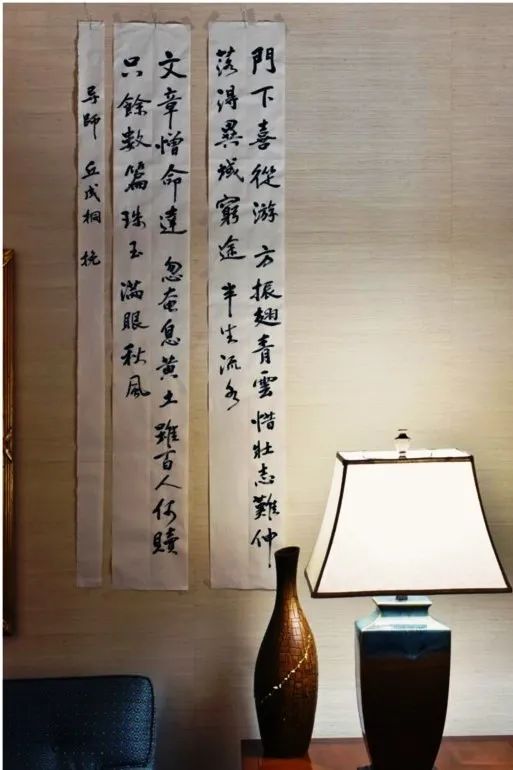 門下喜從游 方振翅青雲 惜壯志難伸
落得異域窮途 半生流水
文章憎命達 忽奄息黄土 雖百人何贖
只餘數篇珠玉 滿眼秋風
导師 丘成桐 挽